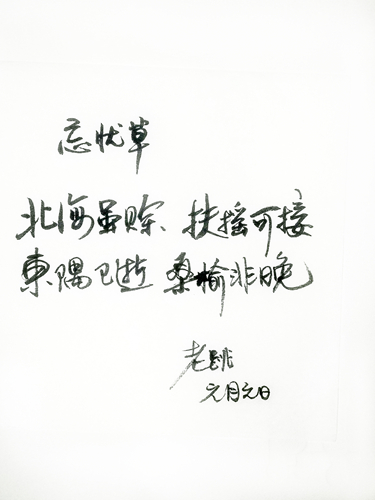 忘忧草
北海虽赊 扶摇可接
東隅已逝 桑榆非晚
老跳
元月元日